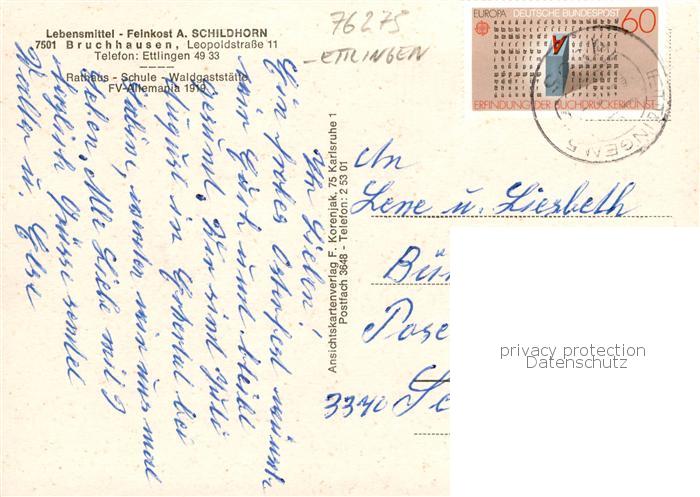 Lebensmittel - Feinkost A. SCHILDHORN
7501 Bruchhausen, Leopoldstraße 11
Telefon: Ettlingen 49 33
Rathaus - Schule - Waldgaststätte
FV-Allemania 1919
76275
-ETTLINGEN
EUROPA DEUTSCHE BUNDESPOST 60
ERFINDUNG DER BUCHDRUCKERKUNST
ETTLINGEN 5
Ansichtskartenverlag F. Korenjak, 75 Karlsruhe 1
Postfach 3648 - Telefon: 2 53 01
Ihr Lieben!
Ein frohes Osterfest wünscht
wir Euch und bleibt
gesund. Wir sind Juli
August in bei
Sabine, werden wir uns mal
sehen. Alles Liebe mit
herzlich Grüsse sendet
Walter u. Else
An
Lene u. Liesbeth
3340
privacy protection
Datenschutz